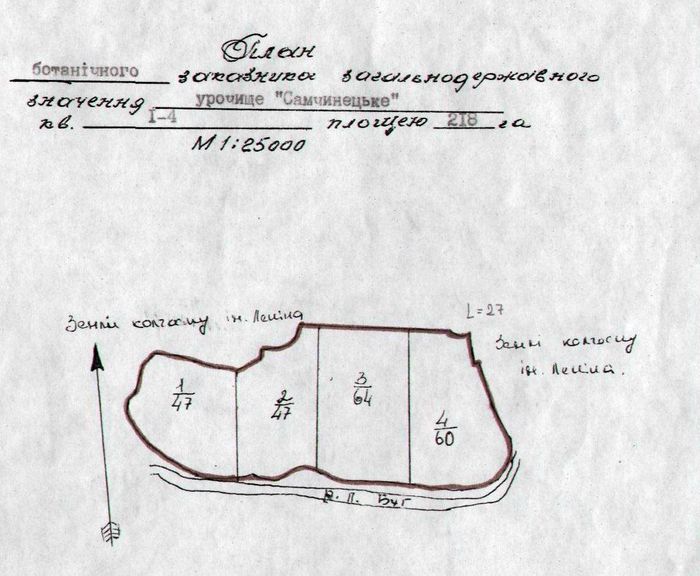 План
ботанічного заказника загальнодержавного
значення урочище "Самчинецьке"
кв. I-4 площею 218 га
М 1:25000
Землі колгоспу ім. Леніна
L=27
Землі колгоспу
ім. Леніна.
1/47
2/47
3/64
4/60
р. П. Буг